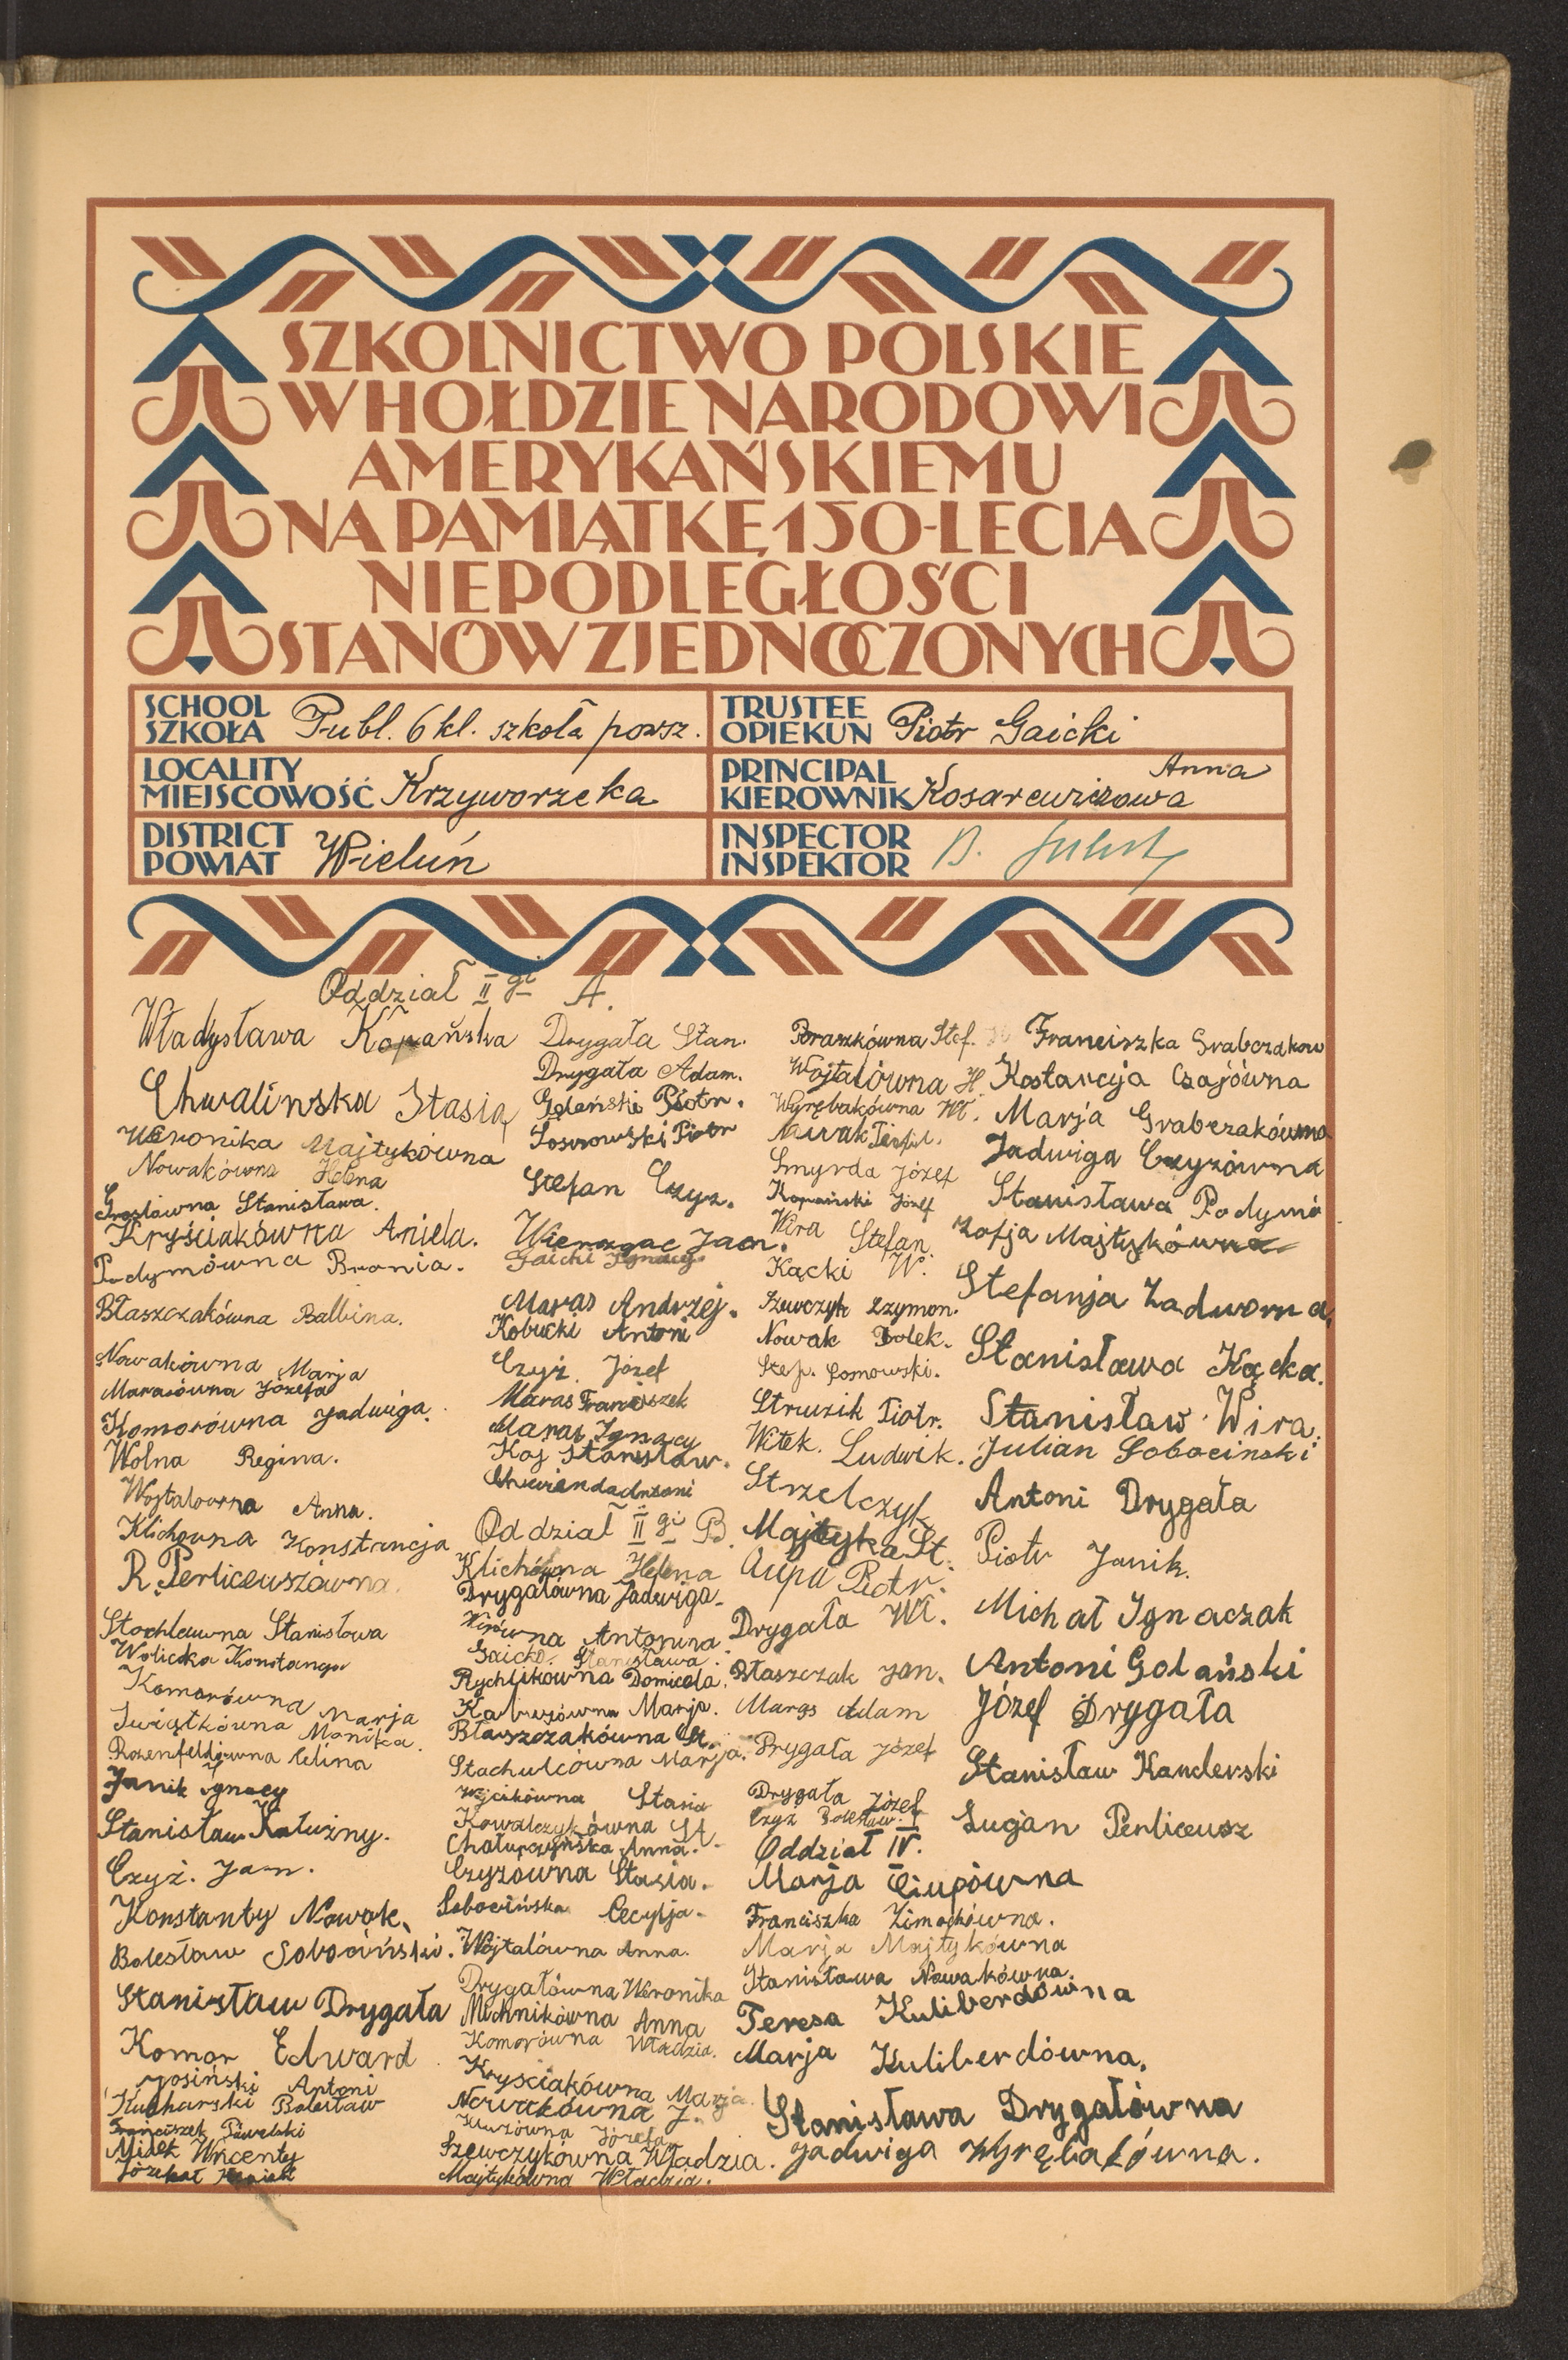 SZKOLNICTWO POLSKIE
W HOŁDZIE NARODOWI
AMERYKAŃSKIEMU
NA PAMIĄTKĘ 150-LECIA
NIEPODLEGŁOŚCI
STANÓW ZJEDNOCZONYCH
SCHOOL
SZKOŁA Publ. 6 kl. szkoła powsz.
TRUSTEE
OPIEKUN Piotr Gaicki
LOCALITY
MIEJSCOWOŚĆ Krzyworzeka
PRINCIPAL Anna
KIEROWNIK Kosarewiczowa
DISTRICT
POWIAT Wieluń
INSPECTOR
INSPEKTOR B.
Oddział II gi A.
Władysława Kopańska
Chwalinska Stasia
Weronika Majtykówna
Nowakówna Helena
Stanisława.
Kryściakówna Aniela.
Podymówna Bronia.
Błaszczakówna Balbina.
Nowakówna Marja
Marasówna Józefa
Komorówna Jadwiga.
Wolna Regina.
Wojtalowna Anna.
Klichowna Konstancja
R. Perliceuszówna.
Stochlawna Stanisława
Wolicka Konstancja
Komorówna Marja
Swiątkówna Monika.
Rozenfeldówna Celina
Janik Ignacy
Stanisław Kałużny.
Czyż. Jan.
Konstanty Nowak.
Bolesław Sobociński.
Stanisław Drygała
Komor Edward
Antoni
Kucharski Bolesław
Franciszek Pawelski
Miłek Wincenty
Drygała Stan.
Drygała Adam.
Goleński Piotr.
Sosnowski Piotr
Stefan Czyz.
Jan.
Gaicki Ignacy
Maras Andrzej.
Kobucki Antoni
Czyż. Józef
Maras Franciszek
Maras Ignacy
Koj Stanisław.
Oddział II gi B.
Klichówna Helena
Drygałówna Jadwiga.
Wirówna Antonina
Gaicka. Stanisława.
Rychlikowna Domicela.
Marja.
Błaszczakówna St.
Stachulcówna Marja.
Wójcikówna Stasia
Kowalczykówna St.
Anna.
Czyzówna Stasia.
Sobocińska Cecylja.
Wojtalówna Anna.
Drygałówna Weronika
Michnikówna Anna
Komorówna Władzia.
Krysciakówna Marja.
Nowakówna J.
Józefa
Szewczykówna Władzia.
Majtykówna Władzia.
Braszkówna Stef.
Wojtalówna H.
Wyrębakówna Wł.
Nowak Teofil.
Smyrda Józef
Kopański Józef
Wira Stefan.
Kącki W.
Szewczyk Szymon.
Nowak Bolek.
Stef. Sosnowski.
Struzik Piotr.
Witek. Ludwik.
Strzelczyk
Majtyka St.
Ciupa Piotr.
Drygała Wł.
Błaszczak Jan.
Maras Adam
Drygała Józef
Drygała Józef
Czyż Bolesław
Oddział IV.
Marja Ciupówna
Franciszka Zimochówna.
Marja Majtykówna
Stanisława Nowakówna.
Teresa Kuliberdówna
Marja Kuliberdówna.
Stanisława Drygałówna
Jadwiga Wyrębakówna.
Franciszka Grabczakow
Kostancja Czajówna
Marja Grabczakówna
Jadwiga Czyzówna
Stanisława Podymó
Zofja Majtykówna
Stefanja Zadworna.
Stanisława Kącka.
Stanisław Wira.
Julian Sobocinski
Antoni Drygała
Piotr Janik.
Michał Ignaczak
Antoni Golański
Józef Drygała
Stanisław Kanclerski
Łucjan Perliceusz